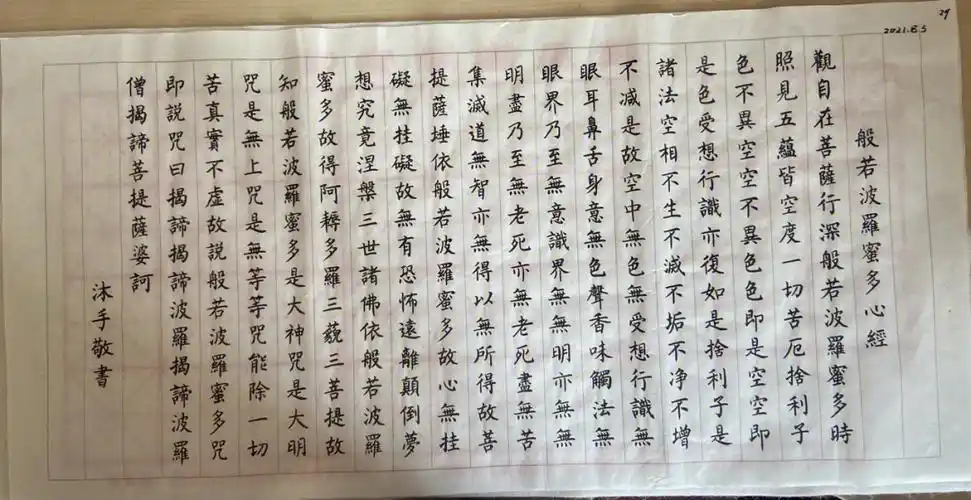 29
2021.8.5
般若波羅蜜多心經
觀自在菩薩行深般若波羅蜜多時
照見五蘊皆空度一切苦厄捨利子
色不異空空不異色色即是空空即
是色受想行識亦復如是捨利子是
諸法空相不生不滅不垢不净不增
不减是故空中無色無受想行識無
眼耳鼻舌身意無色聲香味觸法無
眼界乃至無意識界無無明亦無無
明盡乃至無老死亦無老死盡無苦
集滅道無智亦無得以無所得故菩
提薩埵依般若波羅蜜多故心無挂
礙無挂礙故無有恐怖遠離顛倒夢
想究竟涅槃三世諸佛依般若波羅
蜜多故得阿耨多羅三藐三菩提故
知般若波羅蜜多是大神咒是大明
咒是無上咒是無等等咒能除一切
苦真實不虛故説般若波羅蜜多咒
即説咒曰揭諦揭諦波羅揭諦波羅
僧揭諦菩提薩婆訶
沐手敬書